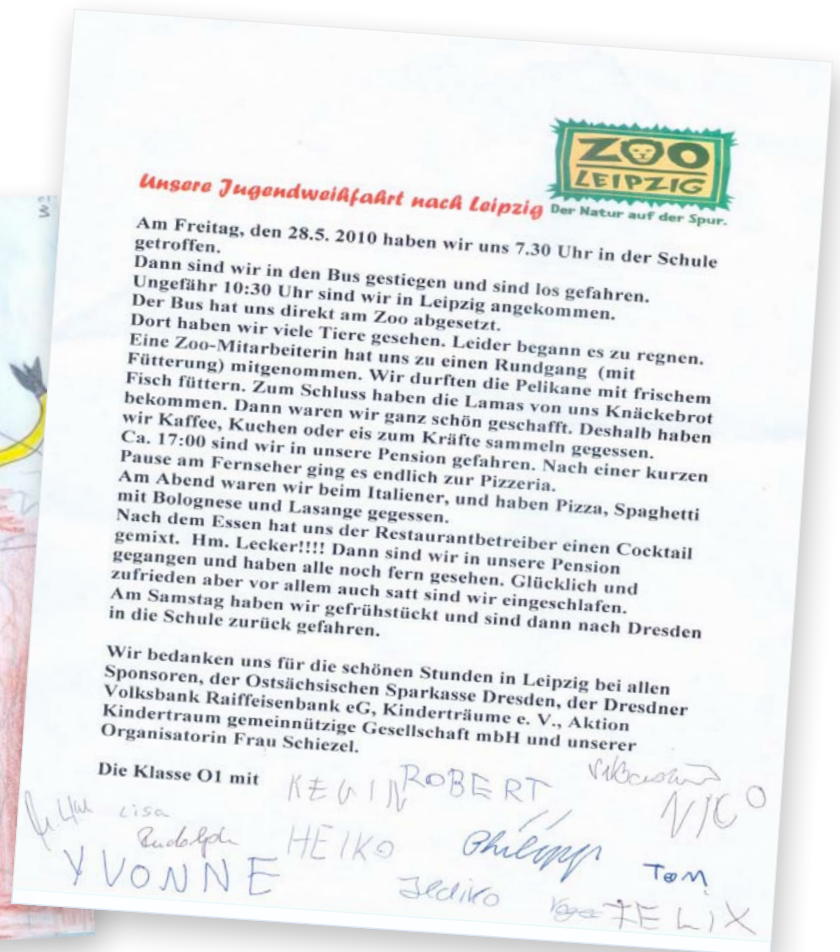 ZOO
LEIPZIG
Der Natur auf der Spur.
Unsere Jugendweihfahrt nach Leipzig
Am Freitag, den 28.5. 2010 haben wir uns 7.30 Uhr in der Schule
getroffen.
Dann sind wir in den Bus gestiegen und sind los gefahren.
Ungefähr 10:30 Uhr sind wir in Leipzig angekommen.
Der Bus hat uns direkt am Zoo abgesetzt.
Dort haben wir viele Tiere gesehen. Leider begann es zu regnen.
Eine Zoo-Mitarbeiterin hat uns zu einen Rundgang (mit
Fütterung) mitgenommen. Wir durften die Pelikane mit frischem
Fisch füttern. Zum Schluss haben die Lamas von uns Knäckebrot
bekommen. Dann waren wir ganz schön geschafft. Deshalb haben
wir Kaffee, Kuchen oder eis zum Kräfte sammeln gegessen.
Ca. 17:00 sind wir in unsere Pension gefahren. Nach einer kurzen
Pause am Fernseher ging es endlich zur Pizzeria.
Am Abend waren wir beim Italiener, und haben Pizza, Spaghetti
mit Bolognese und Lasange gegessen.
Nach dem Essen hat uns der Restaurantbetreiber einen Cocktail
gemixt. Hm. Lecker!!!! Dann sind wir in unsere Pension
gegangen und haben alle noch fern gesehen. Glücklich und
zufrieden aber vor allem auch satt sind wir eingeschlafen.
Am Samstag haben wir gefrühstückt und sind dann nach Dresden
in die Schule zurück gefahren.
Wir bedanken uns für die schönen Stunden in Leipzig bei allen
Sponsoren, der Ostsächsischen Sparkasse Dresden, der Dresdner
Volksbank Raiffeisenbank eG, Kinderträume e. V., Aktion
Kindertraum gemeinnützige Gesellschaft mbH und unserer
Organisatorin Frau Schiezel.
Die Klasse O1 mit
KEVIN ROBERT
NICO
Lisa
Rudolph HEIKO Philipp TOM
YVONNE
FELIX